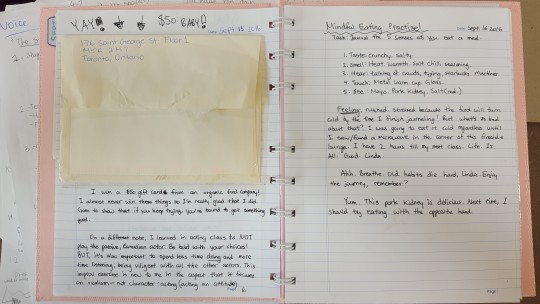 Voice
YAY! $50 BABY!
Sept. 18 2016
176 Saint George St Floor 1
M5R 2M7
Toronto, Ontario
I won a $50 gift card from an organic food company!
I almost never win these things so I'm really glad that I did
learn to show that if you keep trying, you're bound to get something
good.
On a different note, I learned in acting class to NOT
play the passive, Canadian actor. Be bold with your choices!
BUT, it's also important to spend less time doing and more
time listening; being vigilant with all the other actors. This
improv exercise is new to me in the aspect that it focuses
on realism - not character-acting (acting on attitude).
Mindful Eating Practise!
Sept. 16 2016
Task: Involve the 5 senses as you eat a meal.
1. Taste: Crunchy. Salty.
2. Smell: Heat. Warmth. Salt. Chilli seasoning.
3. Hear: talking of crowds, typing, Starbucks Machines
4. Touch: Metal. Warm cup. Glass.
5. See: Mayo. Pork Kidney. Salt (red.)
Feeling: rushed. Stressed because the food will turn
cold by the time I finish journaling! But what's so bad
about that? I was going to eat it cold regardless until
I saw/found a microwave in the corner of this fireside
lounge. I have 2 hours till my next class. Life. Is.
All. Good. Linda.
Ahh. Breathe. Old habits die hard, Linda. Enjoy
the journey, remember?
Yum. This pork kidney is delicious. Next time, I
should try eating with the opposite hand.
Page